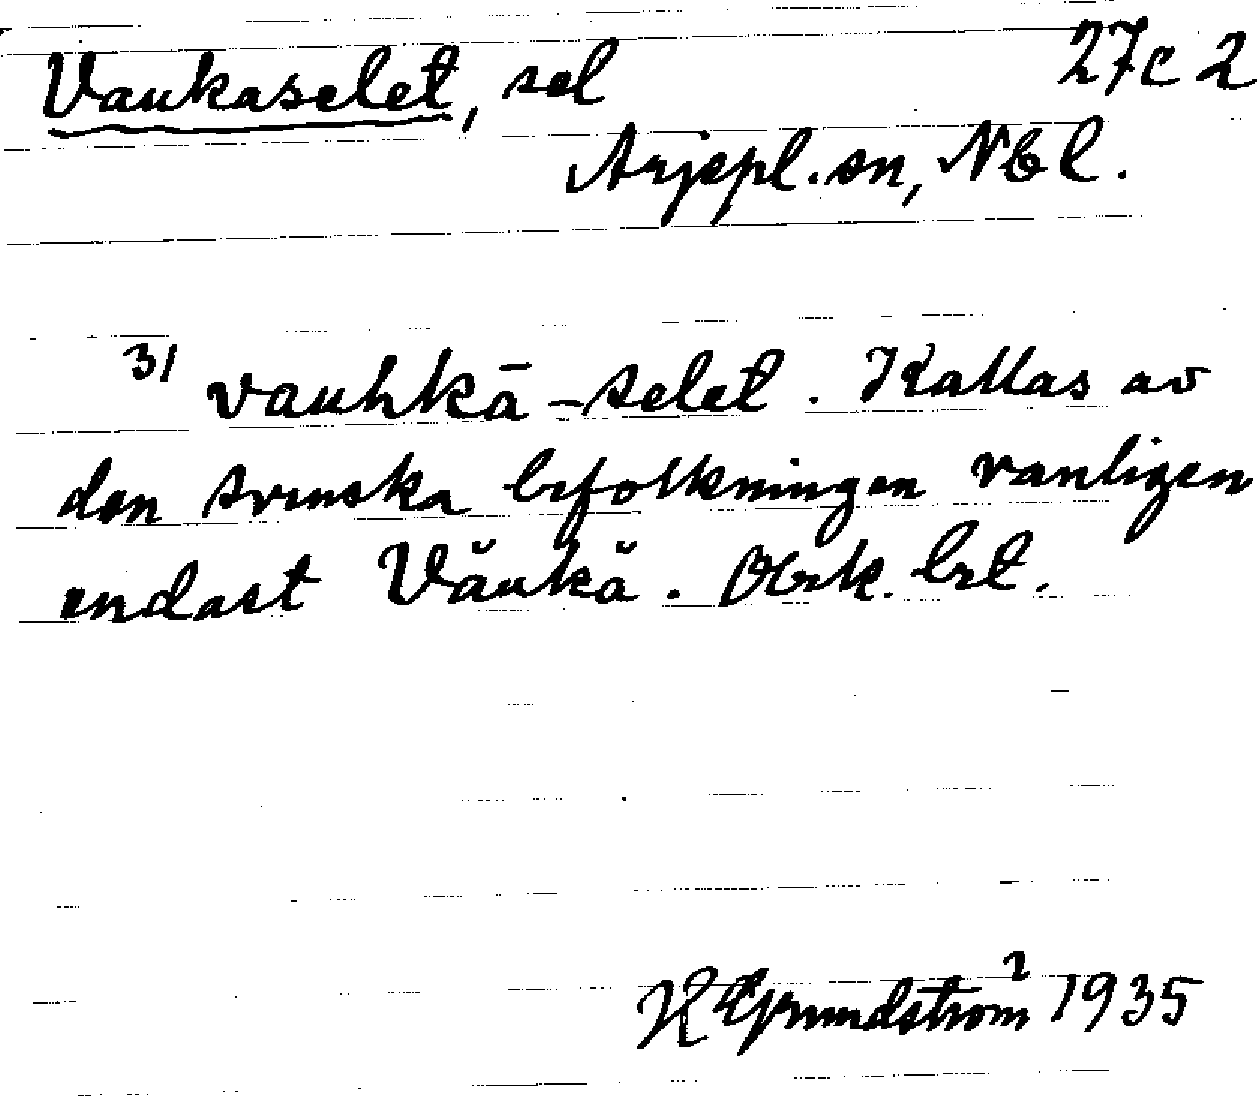 Vaukaselet, sel 27c 2
Arjepl. sn, Nbl.
31 vauhkā-selet. Kallas av
den svenska befolkningen vanligen
endast Văukă. Obsk. bet.
H Grundström 1935